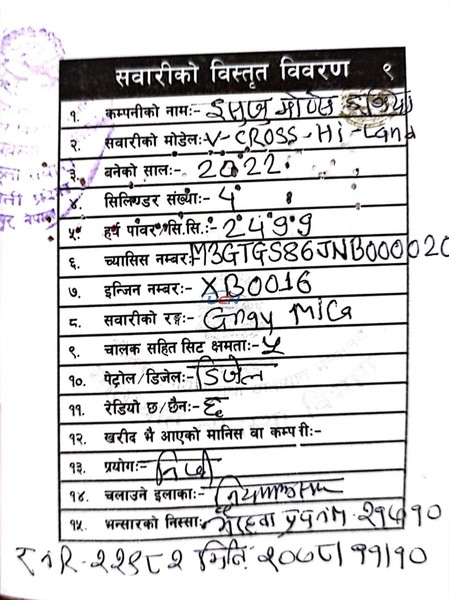 सवारीको विस्तृत विवरण १
१. कम्पनीको नाम:- इसुजु मोटर्स इण्डिया
२. सवारीको मोडेल: V-CROSS-Hi-Land
३. बनेको साल:- 2022
४. सिलिण्डर संख्या:- 4
५. हर्ष पावर सि.सि.:- 2499
६. च्यासिस नम्बर:- M3GTGS86JNB000020
७. इन्जिन नम्बर:- XB0016
८. सवारीको रङ्ग:- Gray Mica
९. चालक सहित सिट क्षमता:- ५
१०. पेट्रोल/डिजेल:- डिजेल
११. रेडियो छ/छैन:- छ
१२. खरीद भै आएको मानिस वा कम्पनी:-
१३. प्रयोग:- निजी
१४. चलाउने इलाका:-
१५. भन्सारको निस्सा:- भैरहवा प्रपनम. २१५१०
र नं R-२२९८२ मिति २०७८/११/१०